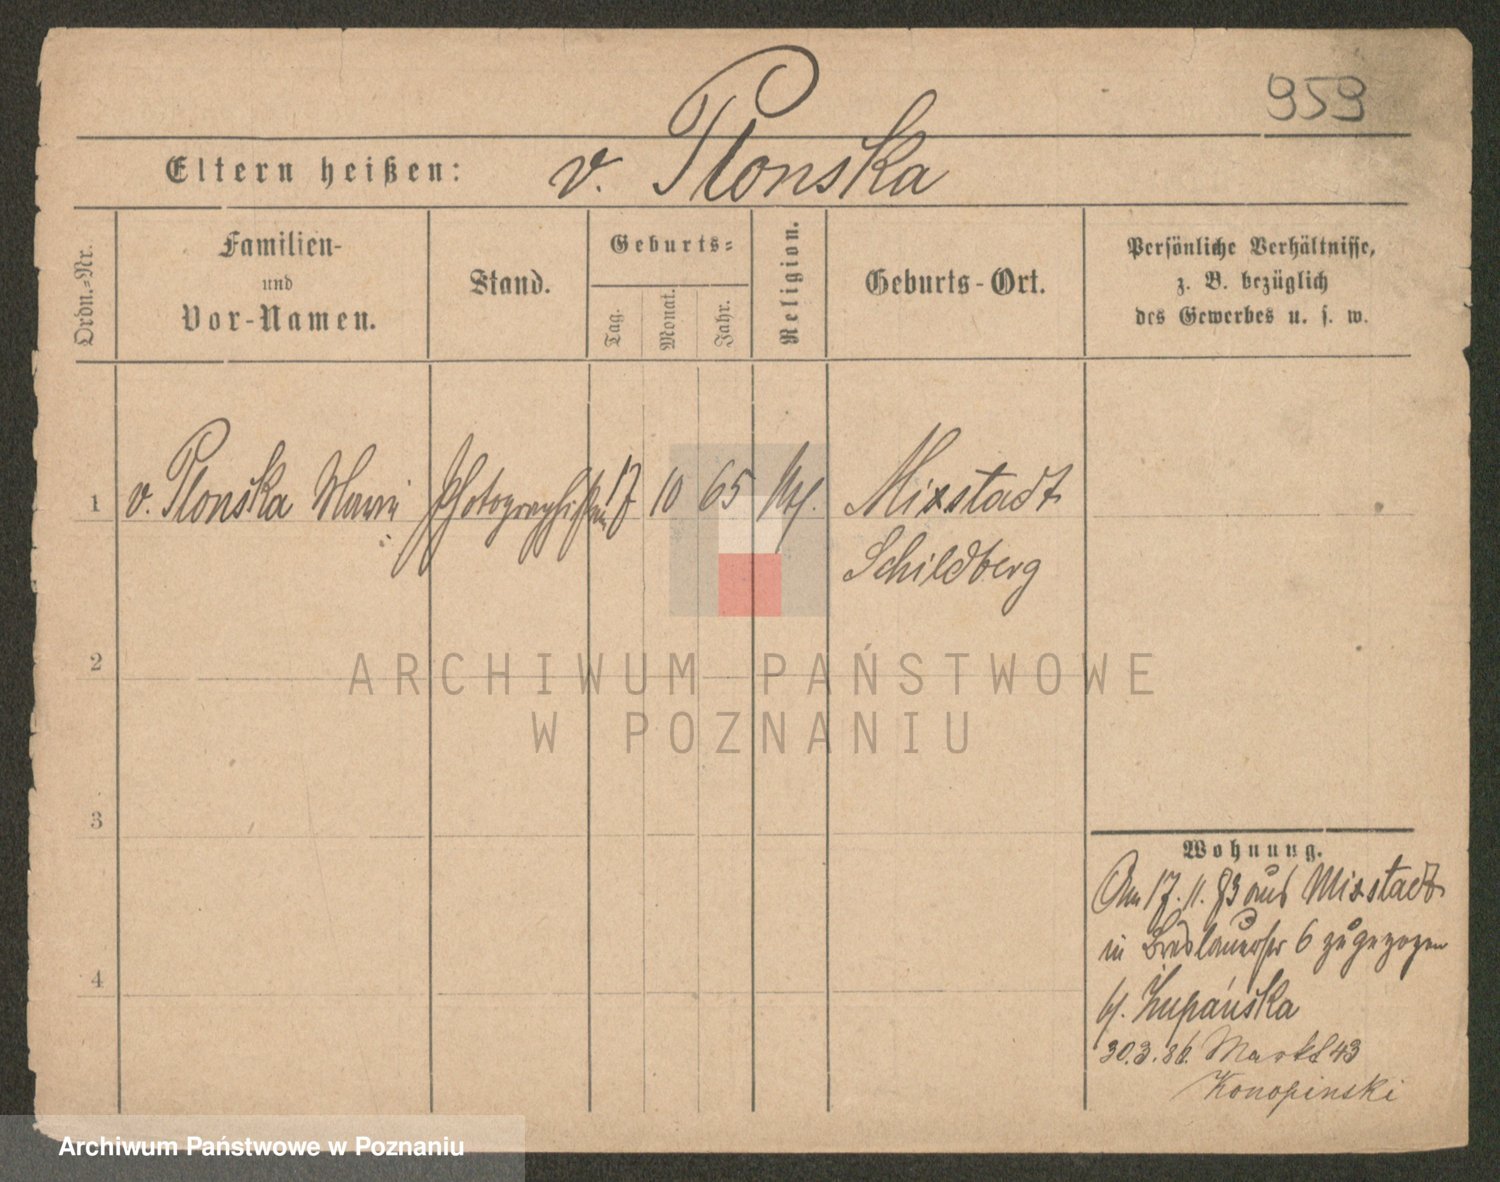 959
Eltern heißen: v. Plonska
Ordn.-Nr.
Familien-
und
Vor-Namen.
Stand.
Geburts-
Tag.
Monat.
Jahr.
Religion.
Geburts-Ort.
Persönliche Verhältnisse,
z. B. bezüglich
des Gewerbes u. s. w.
1 v. Plonska Marie Photographistin 17 10 65 Mixstadt
Schildberg
2
ARCHIWUM PAŃSTWOWE
W POZNANIU
3
Wohnung.
Am 17. 11. 83 aus Mixstadt
in Breslauerstr 6 zugezogen
b/. Żupańska
4
30.3.86. Markt 43
Konopinski
Archiwum Państwowe w Poznaniu